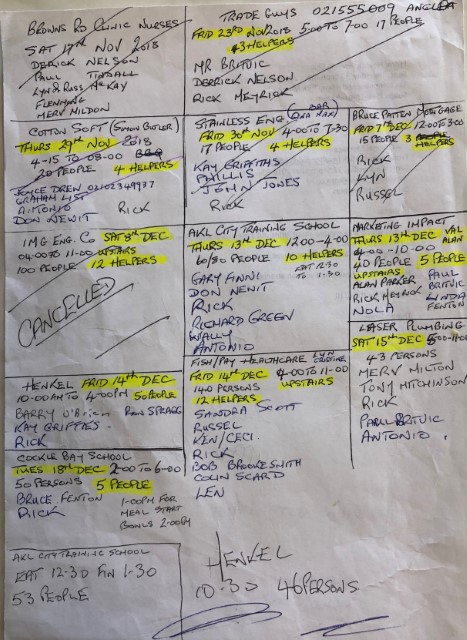 BROWNS RD CLINIC NURSES
SAT 17TH NOV 2018
DERRICK NELSON
PAUL TINDALL
LYN & RUSS McKAY
FLEMMING
MERV MILDON
TRADE GUYS 021555009 ANGELA
FRID 23RD NOV 2018 5:00 TO 7:00 17 PEOPLE
3 HELPERS
MR BRITVIC
DERRICK NELSON
RICK MEYRICK
COTTON SOFT (SIMON BUTLER)
THURS 29TH NOV 2018
4-15 TO 08-00 BBQ
20 PEOPLE 4 HELPERS
JOYCE DREW 02102349937
GRAHAM LIST
ANTONIO RICK
DON NEWIT
STAINLESS ENG (BAR
AND MAX)
FRID 30TH NOV 4-00 TO 7-30
17 PEOPLE 4 HELPERS
KAY GRIFFITHS
PHYLLIS
JOHN JONES
RICK
BRUCE PATTEN MORTGAGE
FRID 7TH DEC 12:00 TO 3:00
15 PEOPLE 3 HELPERS
RICK
LYN
RUSSEL
IMG ENG. CO SAT 8TH DEC
04:00 TO 11-00 UPSTAIRS
100 PEOPLE 12 HELPERS
CANCELLED
AKL CITY TRAINING SCHOOL
THURS 13TH DEC 12.00-4:00
60/80 PEOPLE 10 HELPERS
EAT 12:30
TO 1-30
GARY FINNI
DON NEWIT
RICK
RICHARD GREEN
WALLY
ANTONIO
MARKETING IMPACT
THURS 13TH DEC VAL
4-00-10.00 ALAN
40 PEOPLE 5 PEOPLE
UPSTAIRS PAUL
ALAN PARKER BRITVIC
RICK MEYRICK LINDA
NOLA FENTON
LASER PLUMBING
SAT 15TH DEC 5:00-11:00
43 PERSONS
MERV MILTON
TONY HITCHINSON
RICK
PAUL BRITVIC
ANTONIO
HENKEL FRID 14TH DEC
10-00AM TO 4-00PM 5 PEOPLE
BARRY O'BRIEN RON SPRAGG
KAY GRIFFIES
RICK
FISH/PAY HEALTHCARE LYN
CHRISTINE
FRID 14TH DEC 4-00 TO 11-00
140 PERSONS UPSTAIRS
12 HELPERS
SANDRA SCOTT
RUSSEL
KEN/CECI.
RICK
BOB BROOKESMITH
COLIN SCARD
LEN
COCKLE BAY SCHOOL
TUES 18TH DEC 2:00 TO 6-00
50 PERSONS 5 PEOPLE
BRUCE FENTON 1-00PM FOR
RICK MEAL START
BOWLS 2-00PM
AKL CITY TRAINING SCHOOL
EAT 12-30 FIN 1-30
53 PEOPLE
HENKEL
10-30 46 PERSONS